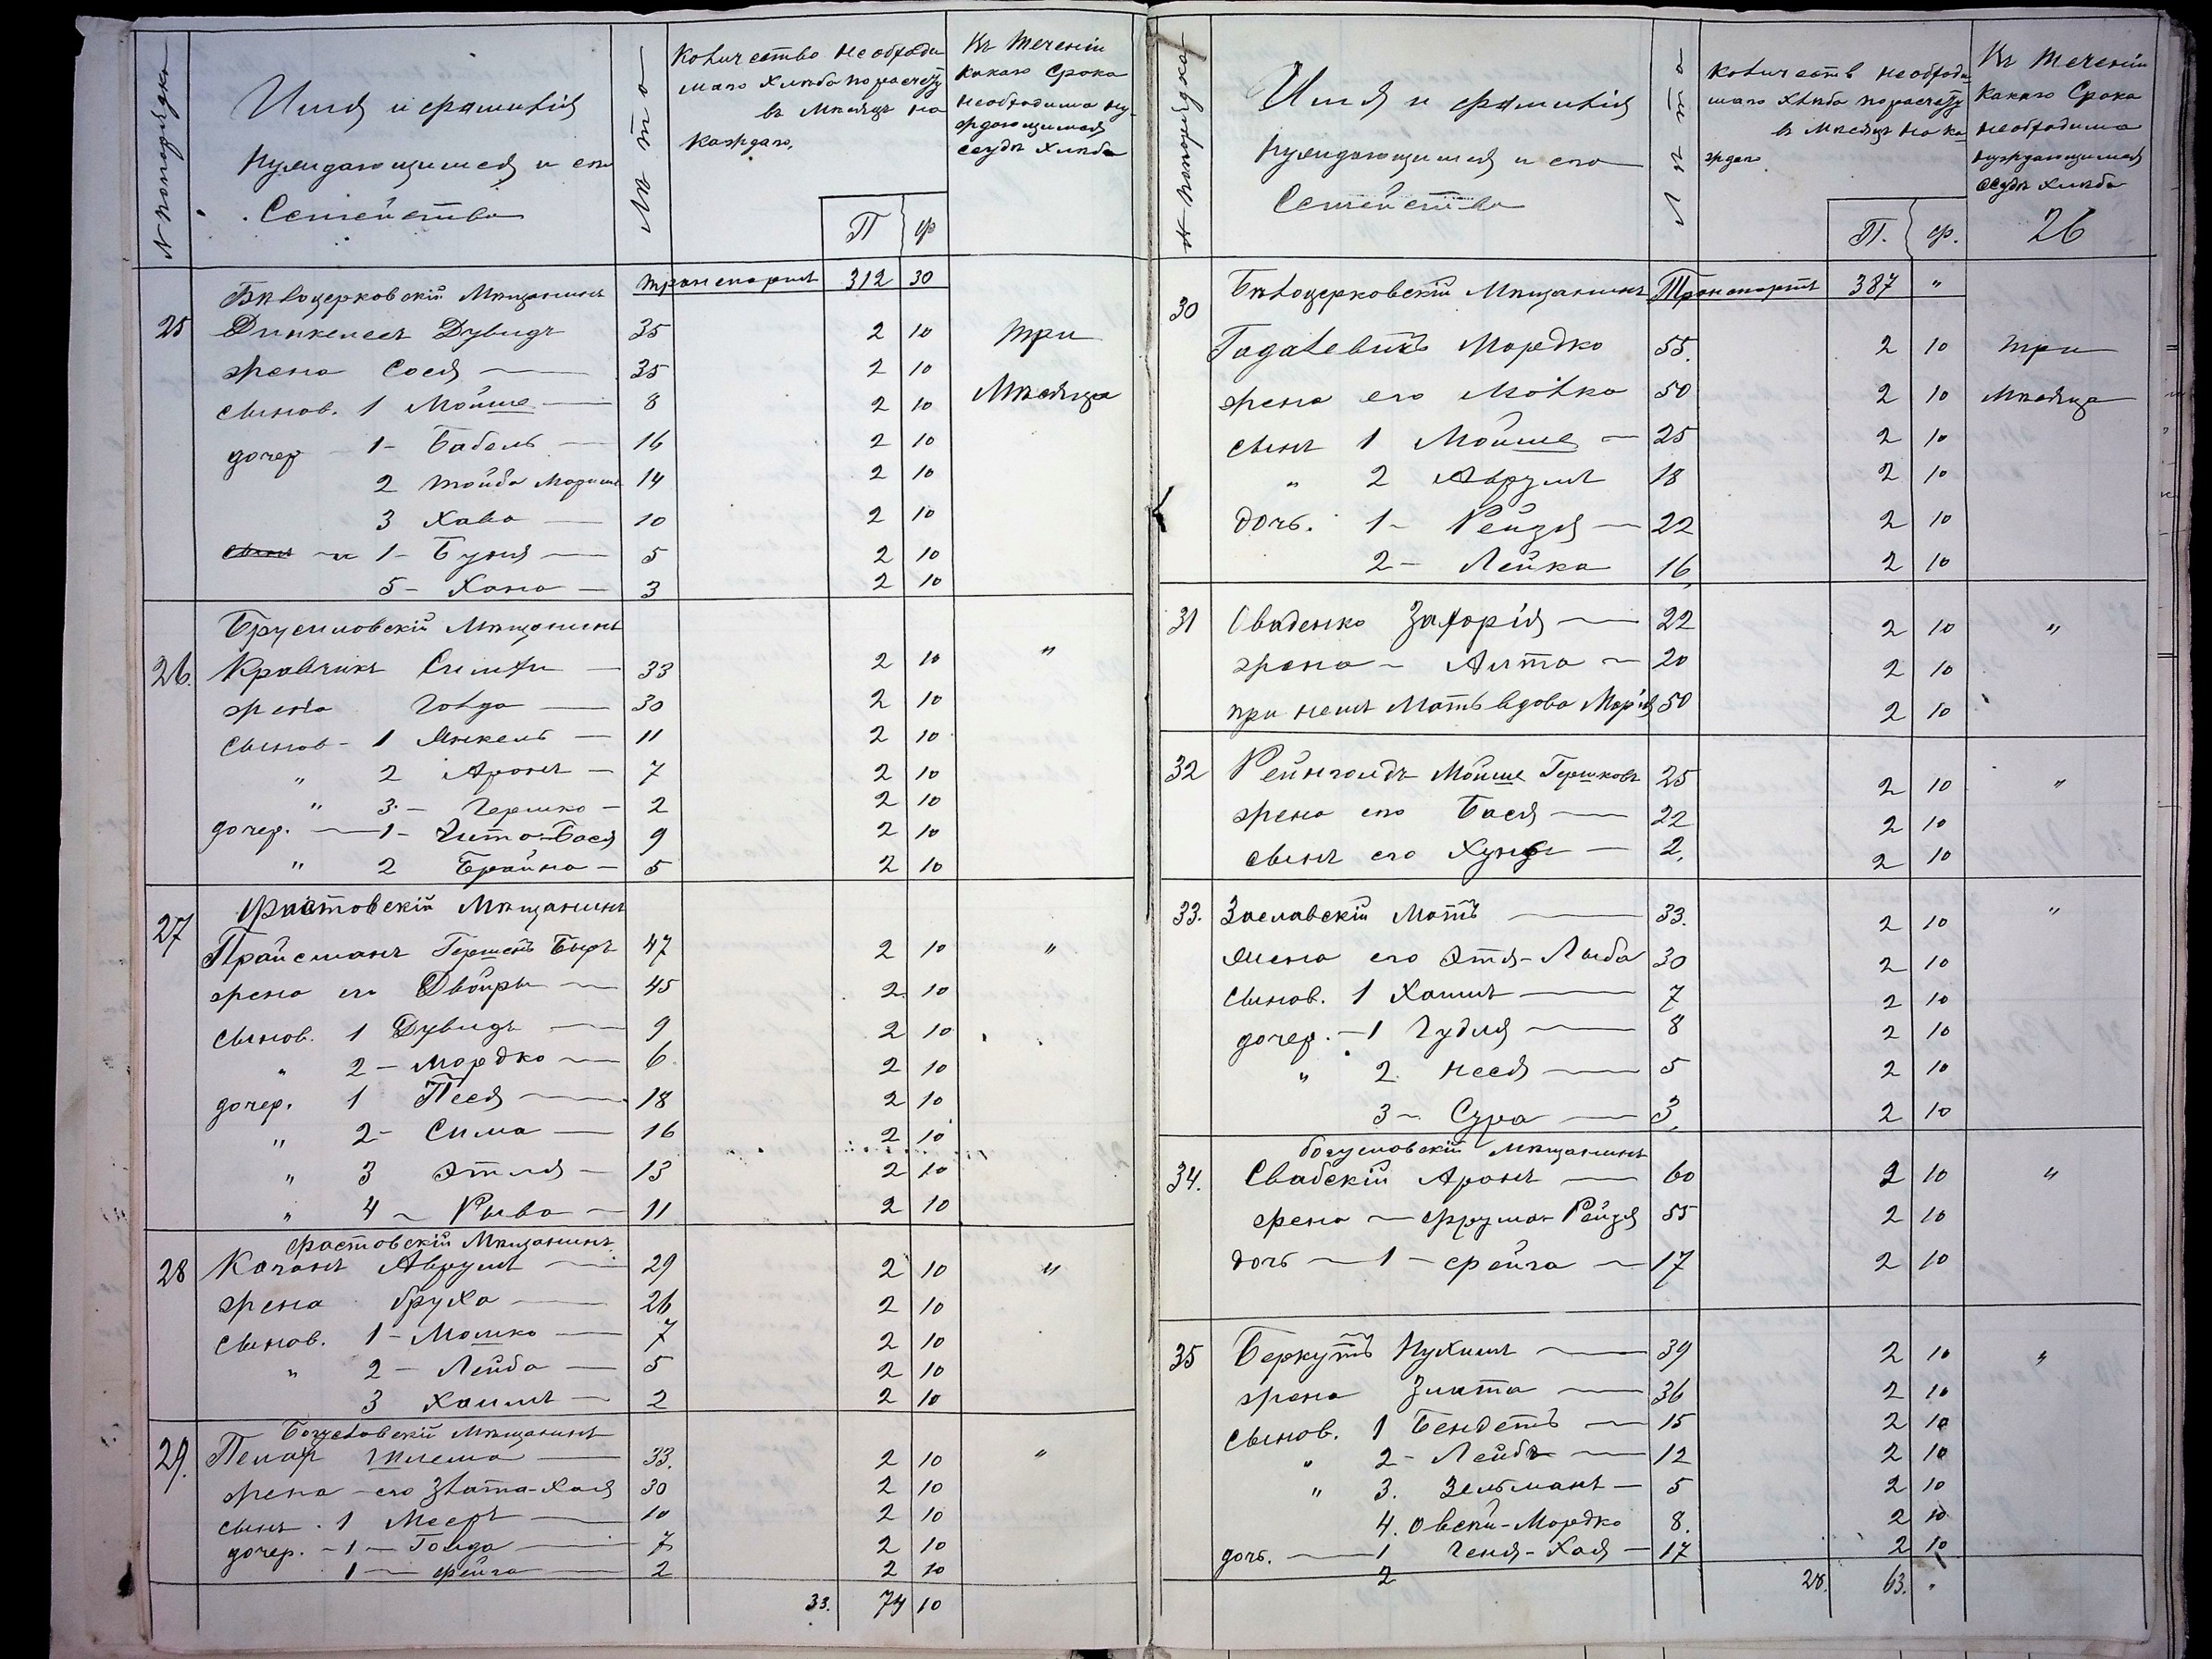 N попорядку
Имя и фамилія
нуждающимся и его
Семейства
Лѣта
Количество необходи
маго Хлѣба по расчету
въ Мѣсяцъ на
каждаго.
П ф
Въ теченіи
какаго Срока
необходима ну-
ждающимся
ссуда Хлѣба
Бѣлоцерковскій Мѣщанинъ транспортъ 312 30
25 Динкелесъ Дувидъ 35 2 10 три
жена Сося — 35 2 10
Сынов. 1 Мойше — 8 2 10 Мѣсяца
дочер 1 - Бабель — 16 2 10
2 Тойба Маріям 14 2 10
3 Хава — 10 2 10
1 - Буня — 5 2 10
5 - Хана — 3 2 10
Брусиловскій Мѣщанинъ
26. Кравчикъ Симхи — 33 2 10 "
жена Голда — 30 2 10
Сынов - 1 Янкель — 11 2 10
" 2 Аронъ — 7 2 10
" 3 - Гершко — 2 2 10
дочер. — 1 - Гита-Бася 9 2 10
" 2 Брайна — 5 2 10
Фастовскій Мѣщанинъ
27 Прайсманъ Гершенъ Беръ 47 2 10 "
жена его Двойра — 45 2 10
Сынов. 1 Дувидъ — 9 2 10
" 2 - Мордко — 6 2 10
дочер. 1 Песя — 18 2 10
" 2 - Сима — 16 2 10
" 3 Этля — 13 2 10
" 4 - Рыва — 11 2 10
Фастовскій Мѣщанинъ
28 Качанъ Аврумъ — 29 2 10 "
жена Бруха — 26 2 10
Сынов. 1 - Мошко — 7 2 10
" 2 - Лейба — 5 2 10
3 Хаимъ — 2 2 10
Богуславскій Мѣщанинъ
29. Шлема — 33. 2 10 "
жена - его Злата-Хая 30 2 10
сынъ . 1 Мееръ — 10 2 10
дочер. - 1 - Голда — 7 2 10
1 — Фейга — 2 2 10
33. 74 10
N попорядку
Имя и фамилія
нуждающимся и его
Семейства
Лѣта
Количеств необходи
маго Хлѣба по расчету
въ Мѣсяцъ на ка-
ждаго
П. ф.
Въ теченіи
Какаго Срока
необходима
нуждающимся
ссуда хлѣба
26
Бѣлоцерковскій Мѣщанинъ Транспортъ 387 "
30
Гадалевичъ Мордко 55. 2 10 три
жена его Малка 50 2 10 Мѣсяца
сынъ 1 Мойше — 25 2 10
" 2 Аврумъ 18 2 10
дочь. 1 - Рейзя — 22 2 10
2 - Лейка 16 2 10
31 Сваденко Захорія — 22 2 10 "
жена - Алта — 20 2 10
при немъ Мать вдова Марія 50 2 10
32 Рейнгольдъ Мойше Гершковъ 25 2 10 "
жена его Бася — 22 2 10
сынъ его — 2. 2 10
33. Заславскій Мотъ — 33. 2 10 "
жена его Этя-Лыба 30 2 10
Сынов. 1 Хаимъ — 7 2 10
дочер. - 1 Гудля — 8 2 10
" 2. Неся — 5 2 10
3 - Сура — 3. 2 10
Богуславскій Мѣщанинъ
34. Свабскій Аронъ — 60 2 10 "
жена — Фрума-Рейзя 55 2 10
дочь — 1 - Фейга — 17 2 10
35 Беркутъ Нухимъ — 39 2 10 "
жена Злата — 36 2 10
Сынов. 1 Бендетъ — 15 2 10
" 2 - Лейбъ — 12 2 10
" 3. Зельманъ — 5 2 10
4. Овсей-Мордко 8. 2 10
дочь. — 1 Геня-Хая — 17 2 10
2
28. 63. "